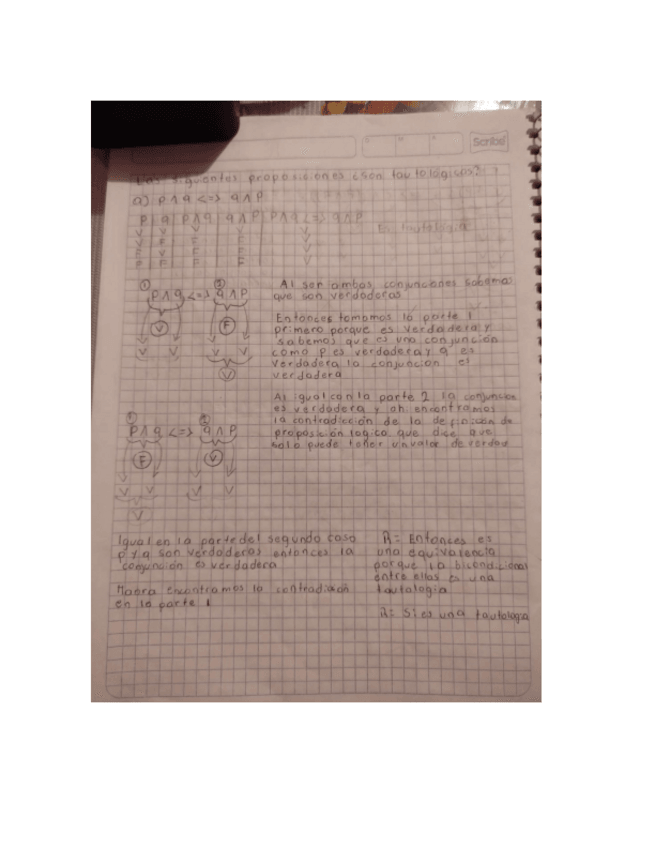 Scribe
Las siguientes proposiciones ¿Son tautológicas?
a) P ∧ q <=> q ∧ P
P q P ∧ q q ∧ P P ∧ q <=> q ∧ P
V V V V V
V F F F V Es tautología
F V F F V
F F F F V
① ②
P ∧ q <=> q ∧ P
V F
V V V V
V
Al ser ambas conjunciones sabemos
que son verdaderas
Entonces tomamos la parte 1
primero porque es verdadera y
sabemos que es una conjunción
como P es verdadera y q es
verdadera la conjunción es
verdadera
Al igual con la parte 2 la conjunción
es verdadera y ah encontramos
la contradicción de la definición de
proposición logica que dice que
solo puede tener un valor de verdad
① ②
P ∧ q <=> q ∧ P
F V
V V V V
V
Igual en la parte del segundo caso
P y q son verdaderas entonces la
conjunción es verdadera
encontramos la contradicción
en la parte 1
R= Entonces es
una equivalencia
porque la bicondicional
entre ellas es una
tautologia
R= Si es una tautologia